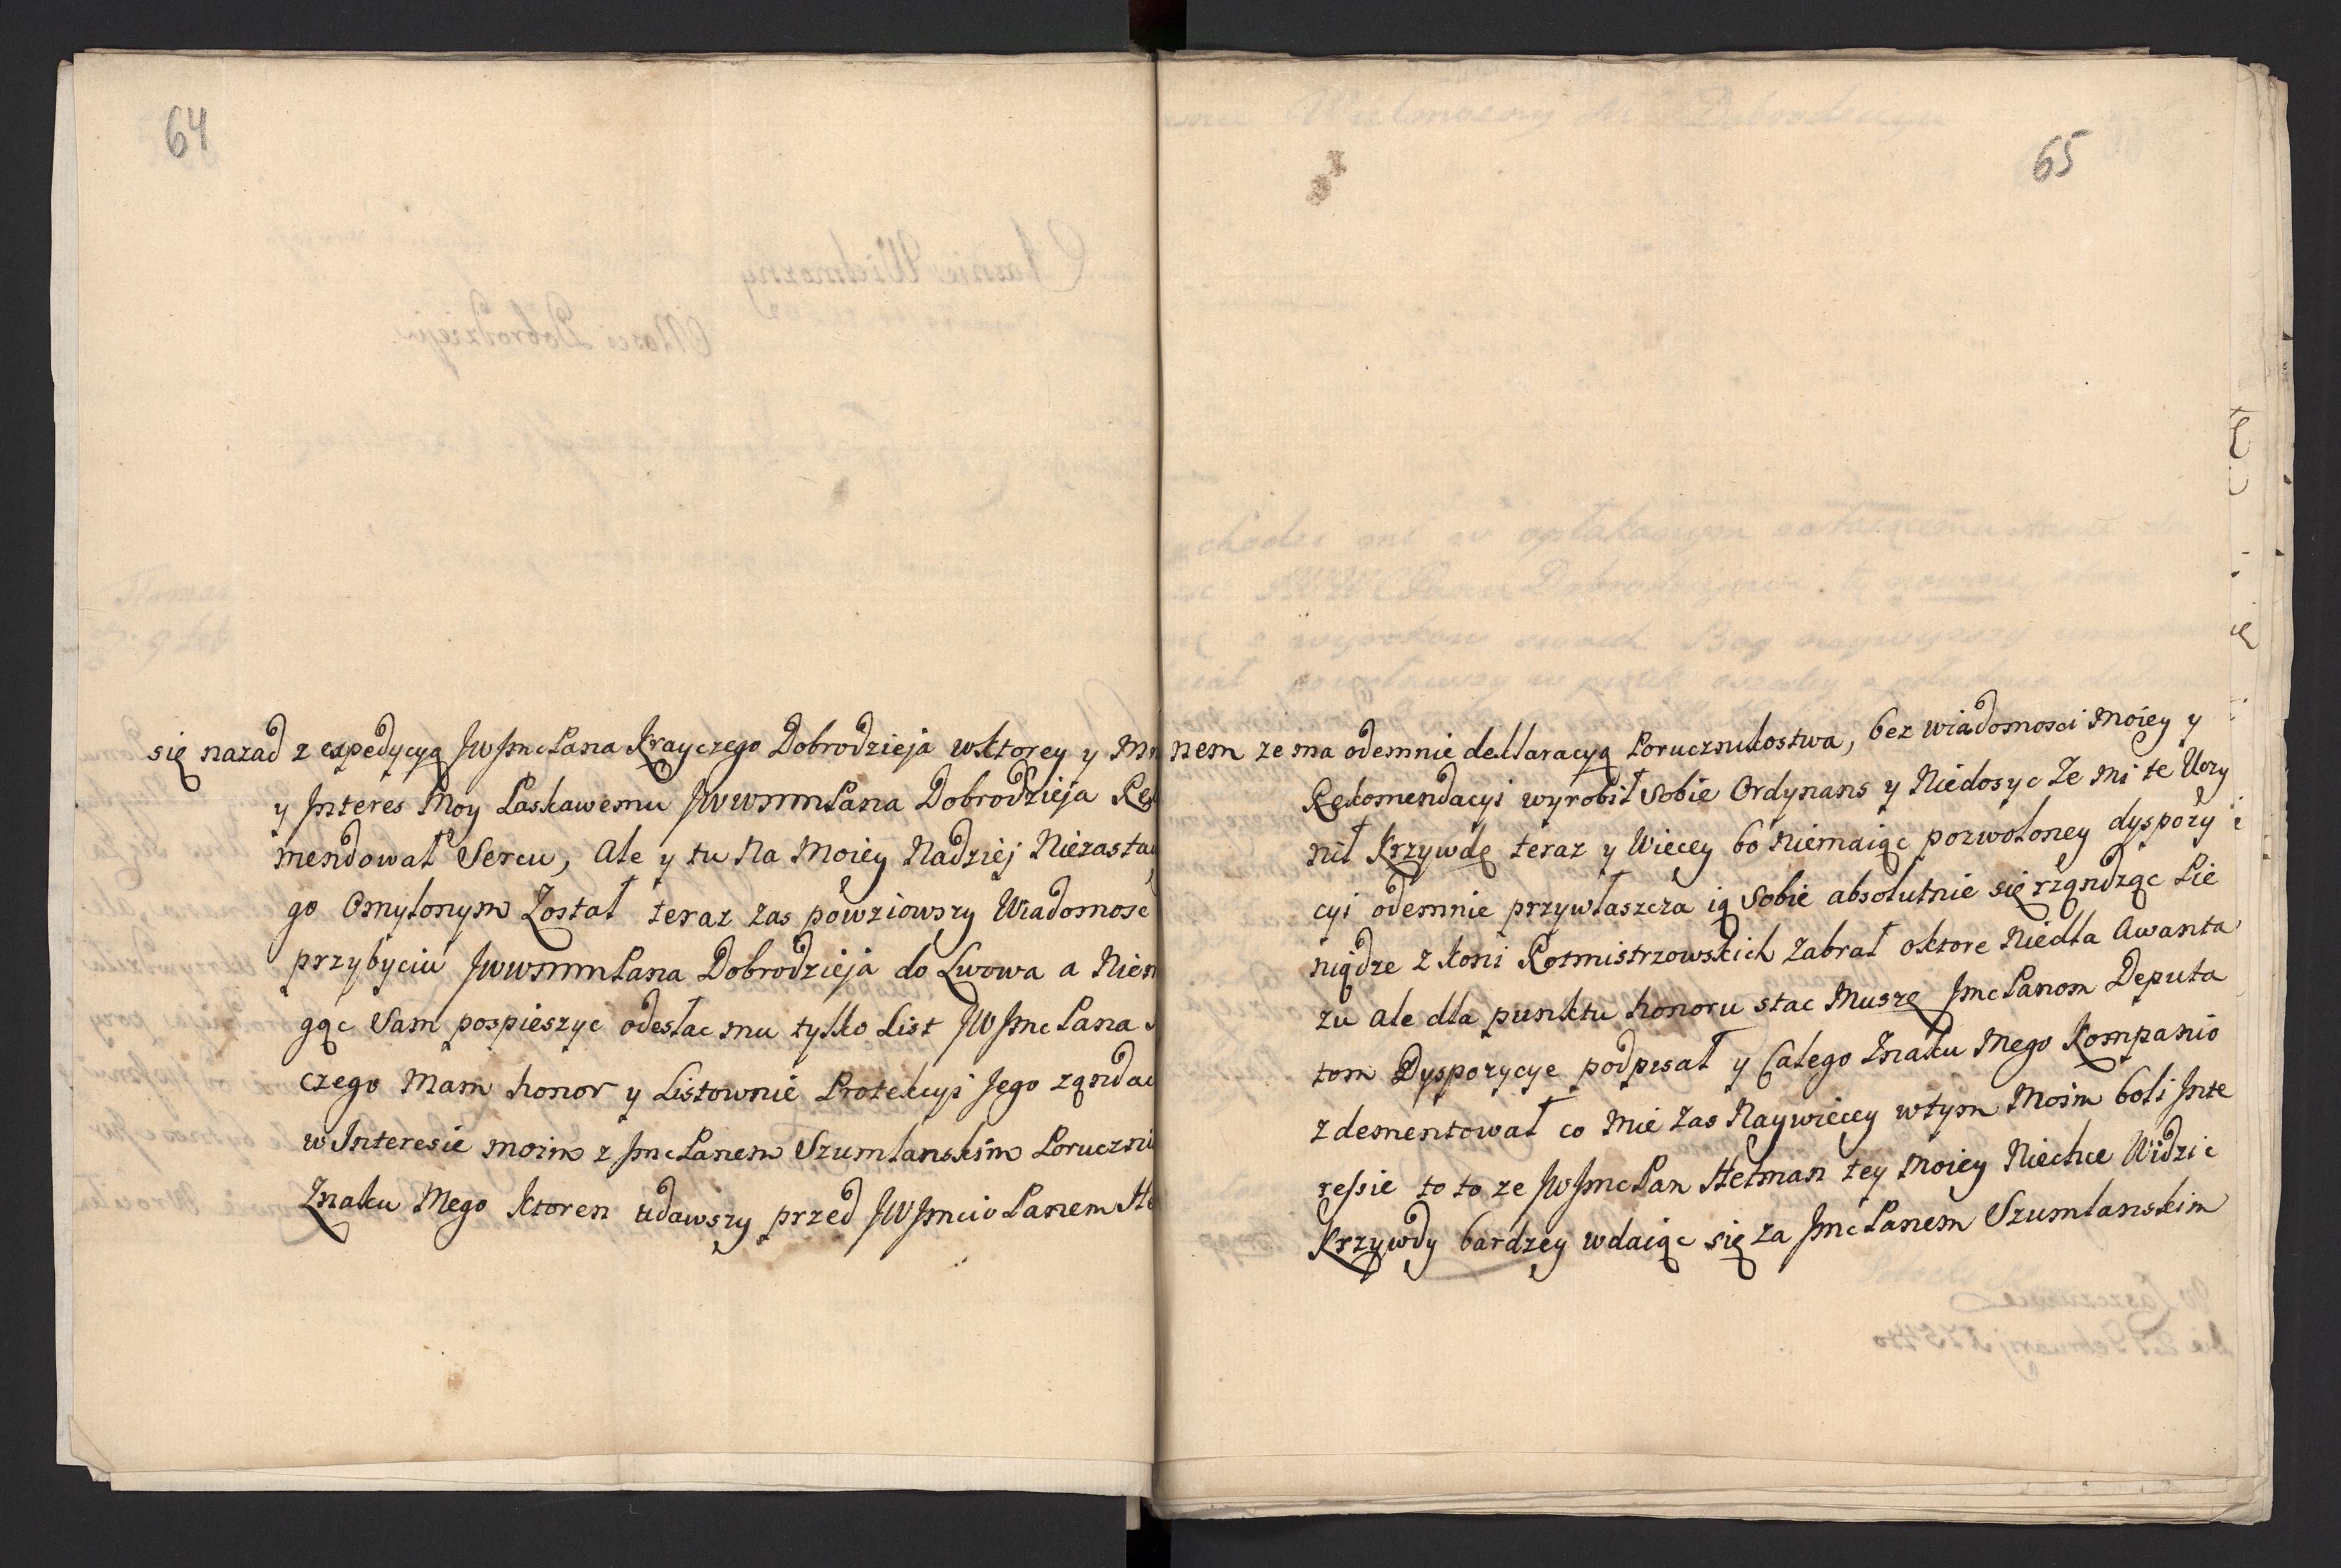 64
się nazad z expedycyą JWJmcPana Krayczego Dobrodzieja wktorey y
y Jnteres Moy Łaskawemu JWWMMPana Dobrodzieja
mendował Sercu, Ale y tu Na Moiey Nadziej
go Omylonym Został teraz zas powziowszy Wiadomosc
przybyciu JWWMMPana Dobrodzieja do Lwowa a
gąc Sam pospieszyc odesłac mu tylko List JWJmcPana
czego Mam honor y Listownie Protekcyi Jego
w Jnteresie moim z JmcPanem Szumlanskim
Znaku Mego Ktoren udawszy przed JWJmcio Panem
65
nem ze ma odemnie deklaracyą Porucznikostwa, bez wiadomosci Moiey y
Rekomendacyi wyrobił Sobie Ordynans y Niedosyc Ze Mi te Uczy
nił Krzywdę teraz y Wiecey bo Niemaiąc pozwoloney dyspozy
cyi odemnie przywłaszcza ią Sobie absolutnie się rządząc Pie
niądze z Koni Rotmistrzowskich Zabrał oktore Niedla Awanta
zu ale dla punktu honoru stac Muszę JmcPanom Deputa
tom Dyspozycye podpisał y Całego Znaku Mego Kompanio
zdementował co Mie Zas Naywiecey wtym Moim boli Jnte
ressie to to ze JWJmcPan Hetman tey Moiey Niechce Widzic
Krzywdy bardzey wdaiąc się za JmcPanem Szumlanskim